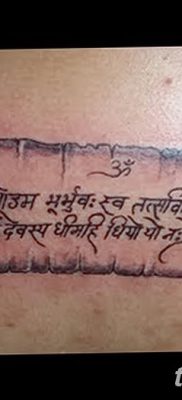 ॐ
ओडम भूर्भुवः स्व तत्सवि
देवस्य धीमहि धियो यो नः